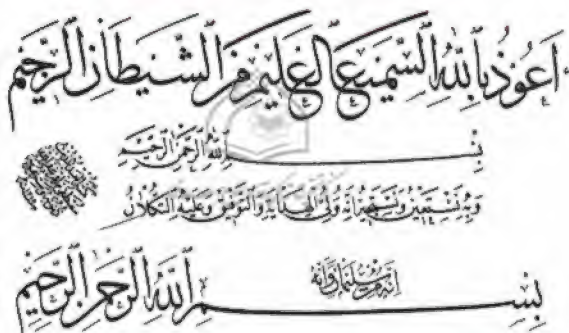 اعوذ بالله السميع العليم من الشيطان الرجيم
بسم الله الرحمن الرحيم
وبه نستعين
ولي الهداية والتوفيق وعليه التكلان
انه من سليمان وانه
بسم الله الرحمن الرحيم